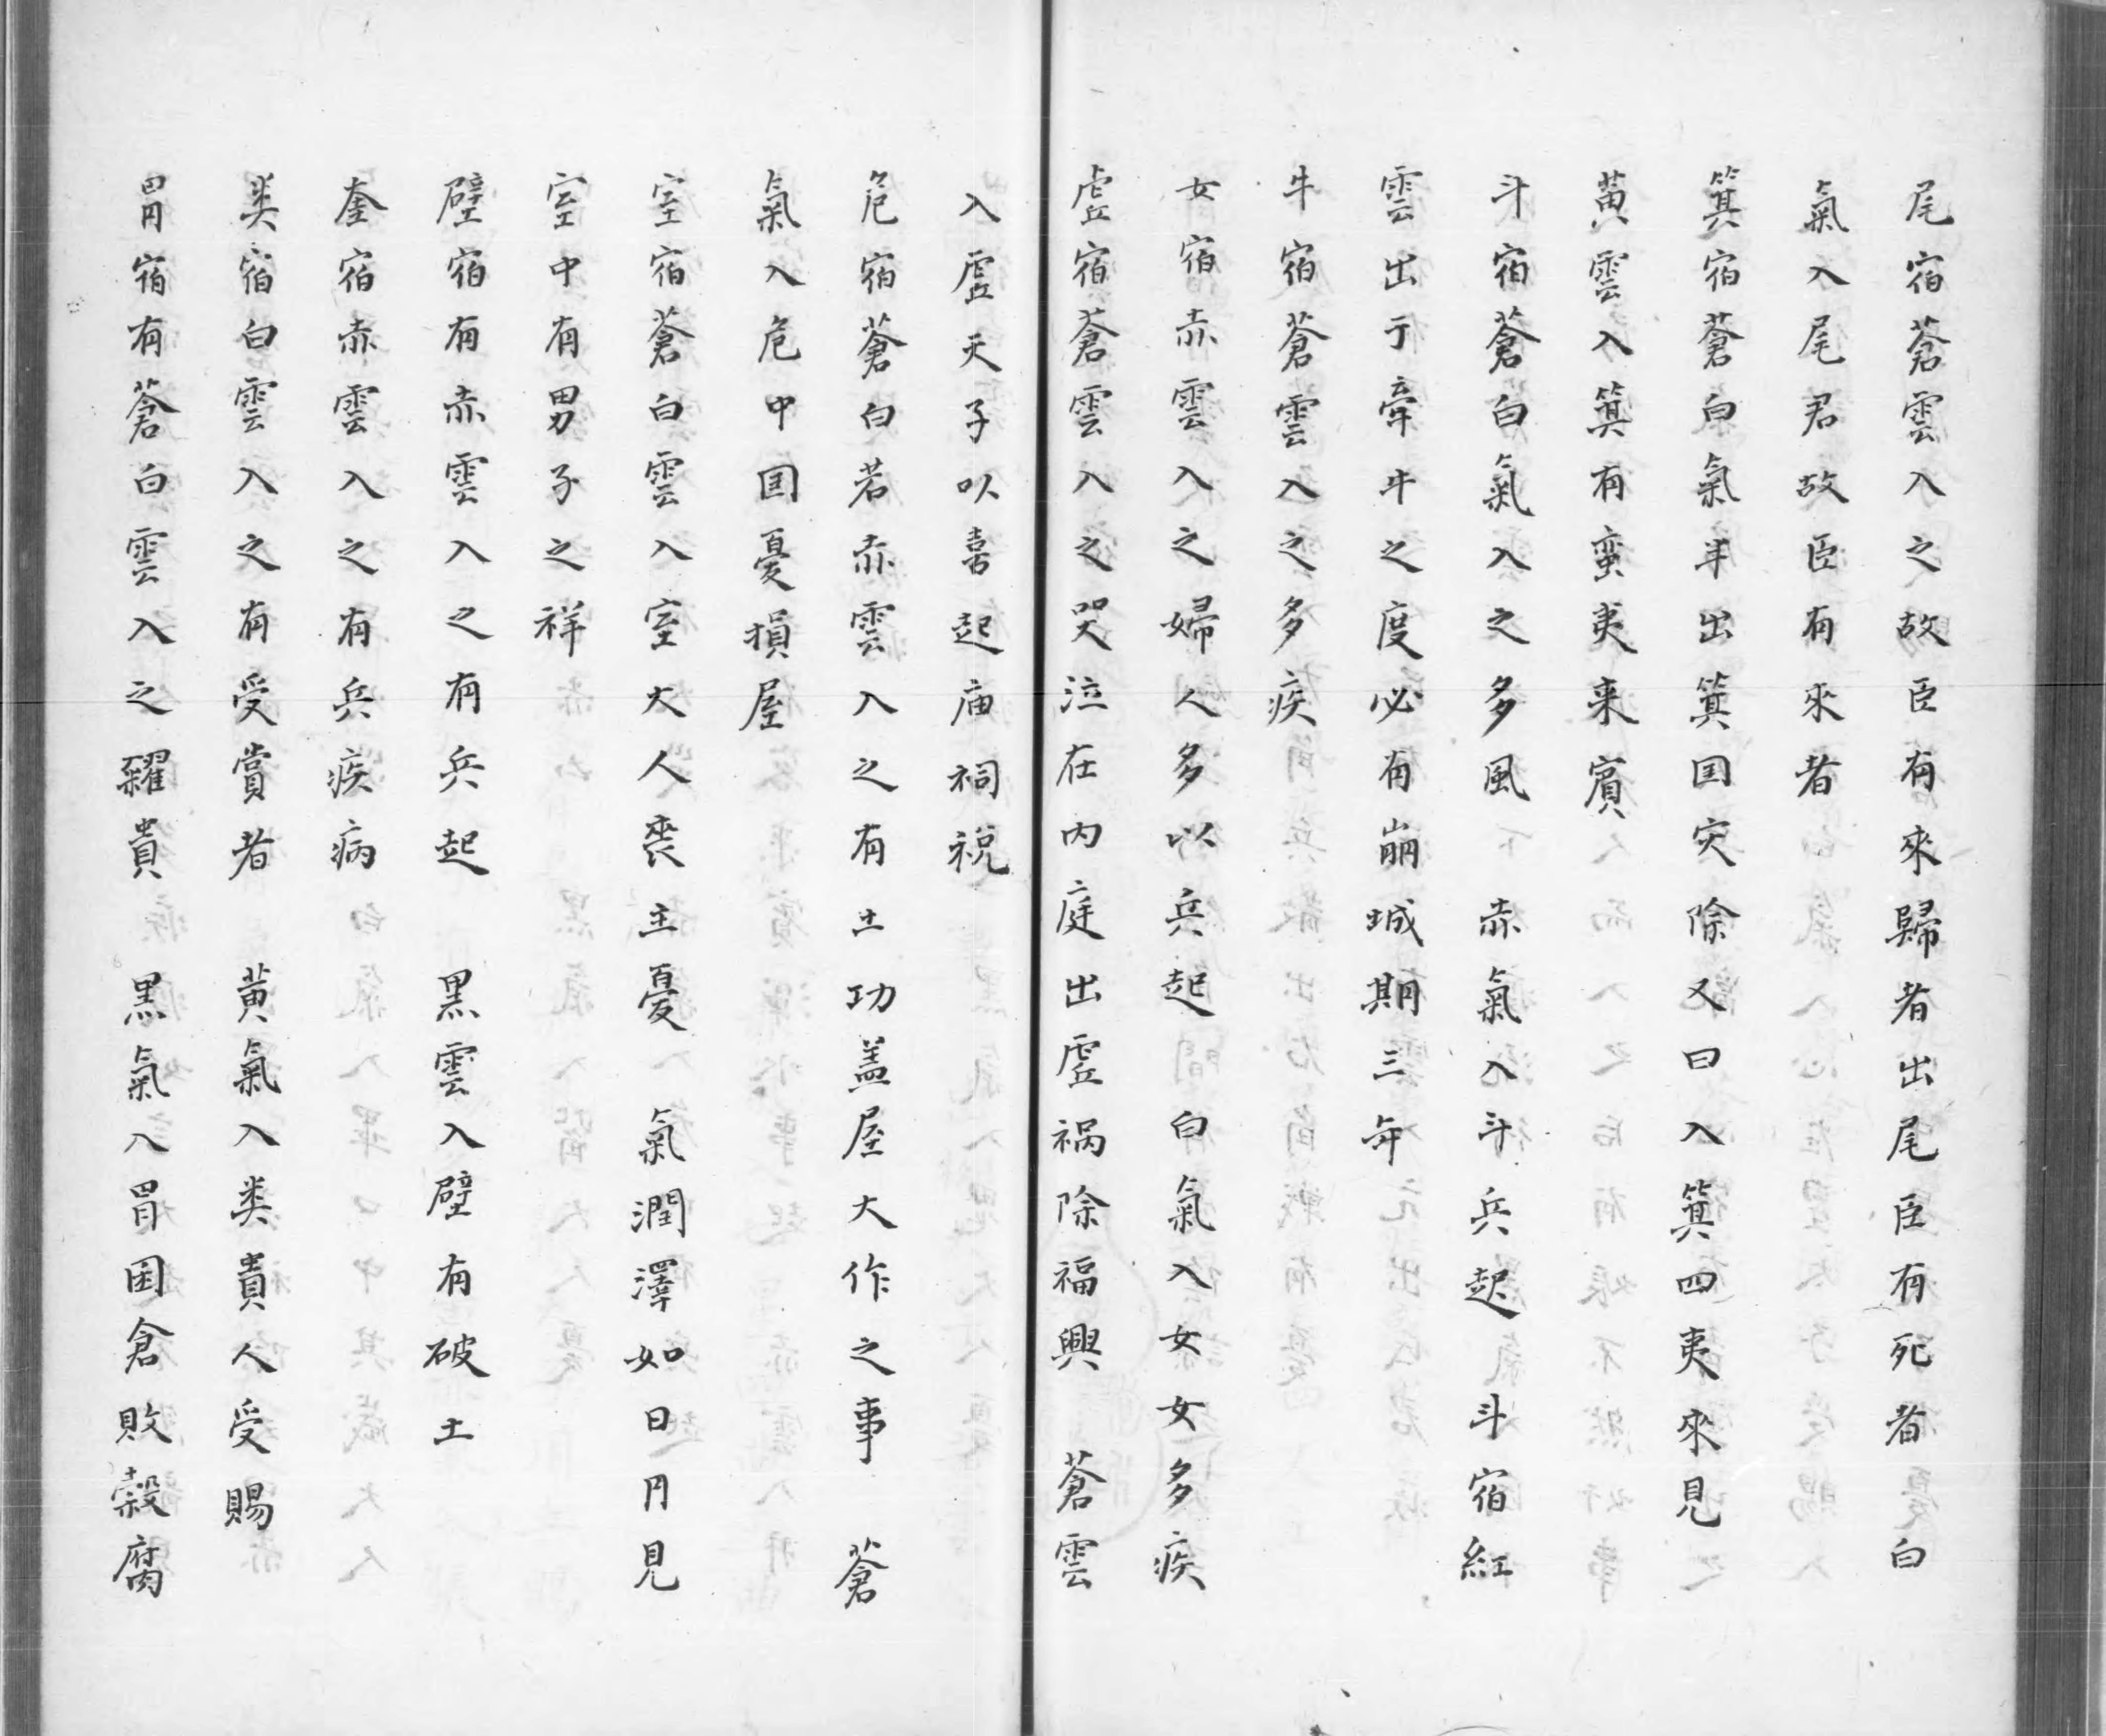 尾宿蒼雲入之故臣有來歸者出尾臣有死者白
氣入尾君故臣有來者
箕宿蒼白氣半出箕国灾除又曰入箕四夷來見
黄雲入箕有蛮夷来賓
斗宿蒼白氣入之多風 赤氣入斗兵起 斗宿紅
雲出于牽牛之度必有崩城期三年
牛宿蒼雲入之多疾
女宿赤雲入之婦人多以兵起 白氣入女女多疾
虚宿蒼雲入之哭泣在内庭出虚祸除福興 蒼雲
入虚天子以喜起庙祠祝
危宿蒼白若赤雲入之有土功盖屋大作之事 蒼
氣入危中国憂損屋
室宿蒼白雲入室大人喪主憂 氣潤澤如日月見
室中有男子之祥
壁宿有赤雲入之有兵起 黒雲入壁有破土
奎宿赤雲入之有兵疾病
娄宿白雲入之有受賞者 黄氣入娄貴人受賜
胃宿有蒼白雲入之糴貴 黒氣入胃囷倉敗穀腐